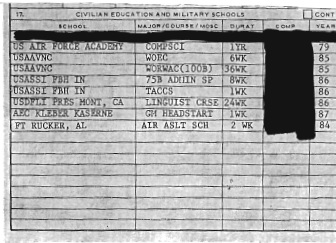 17. CIVILIAN EDUCATION AND MILITARY SCHOOLS CONT
SCHOOL MAJOR/COURSE/MOSC DURAT COMP YEAR
US AIR FORCE ACADEMY COMPSCI 1YR 79
USAAVNC WOEC 6WK 85
USAAVNC WORWAC(100B) 36WK 86
USASSI FBH IN 75B ADHIN SP 8WK 86
USASSI FBH IN TACCS 1WK 86
USDFLI PRES MONT, CA LINGUIST CRSE 24WK 86
AEC KLEBER KASERNE GM HEADSTART 1WK 87
FT RUCKER, AL AIR ASLT SCH 2 WK 84